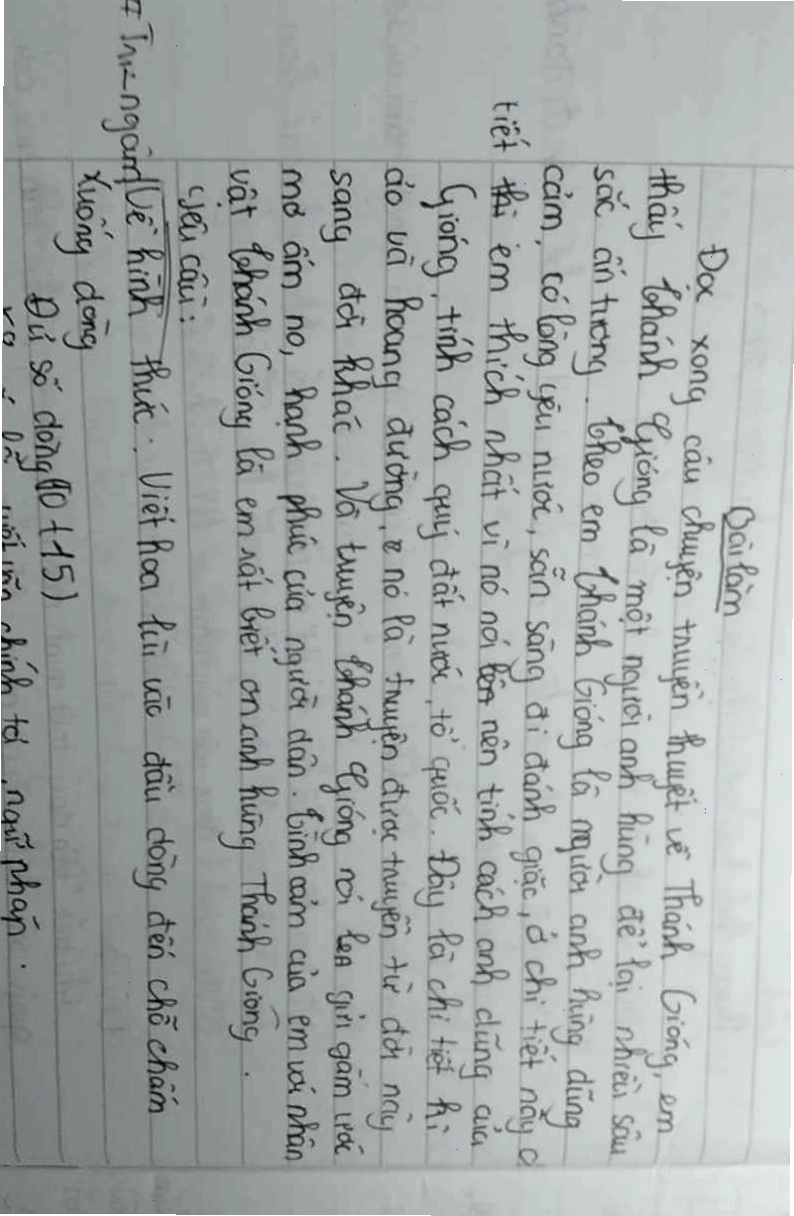 Bài làm
Đọc xong câu chuyện truyền thuyết về Thánh Gióng, em
thấy thánh Gióng là một người anh hùng để lại nhiều sâu
sắc ấn tượng. theo em thánh Gióng là người anh hùng dũng
cảm, có lòng yêu nước, sẵn sàng đi đánh giặc, ở chi tiết này
tiết em thích nhất vì nó nói nên tính cách anh dũng của
Gióng, tính cách quý đất nước, tổ quốc. Đây là chi tiết kì
ảo và hoang đường, nó là truyện được truyền từ đời này
sang đời khác. Và truyện thánh Gióng nói lên gửi gắm ước
mơ ấm no, hạnh phúc của người dân. tình cảm của em với nhân
vật thánh Gióng là em rất biết ơn anh hùng Thánh Gióng.
yêu cầu:
Về hình thức: Viết hoa lùi vào đầu dòng đến chỗ chấm
xuống dòng
Đủ số dòng (10 + 15)
chính tả, ngữ pháp.